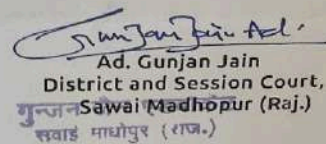 Gunjan Jain Ad.
Ad. Gunjan Jain
District and Session Court,
Sawai Madhopur (Raj.)
गुन्जन
सवाई माधोपुर (राज.)